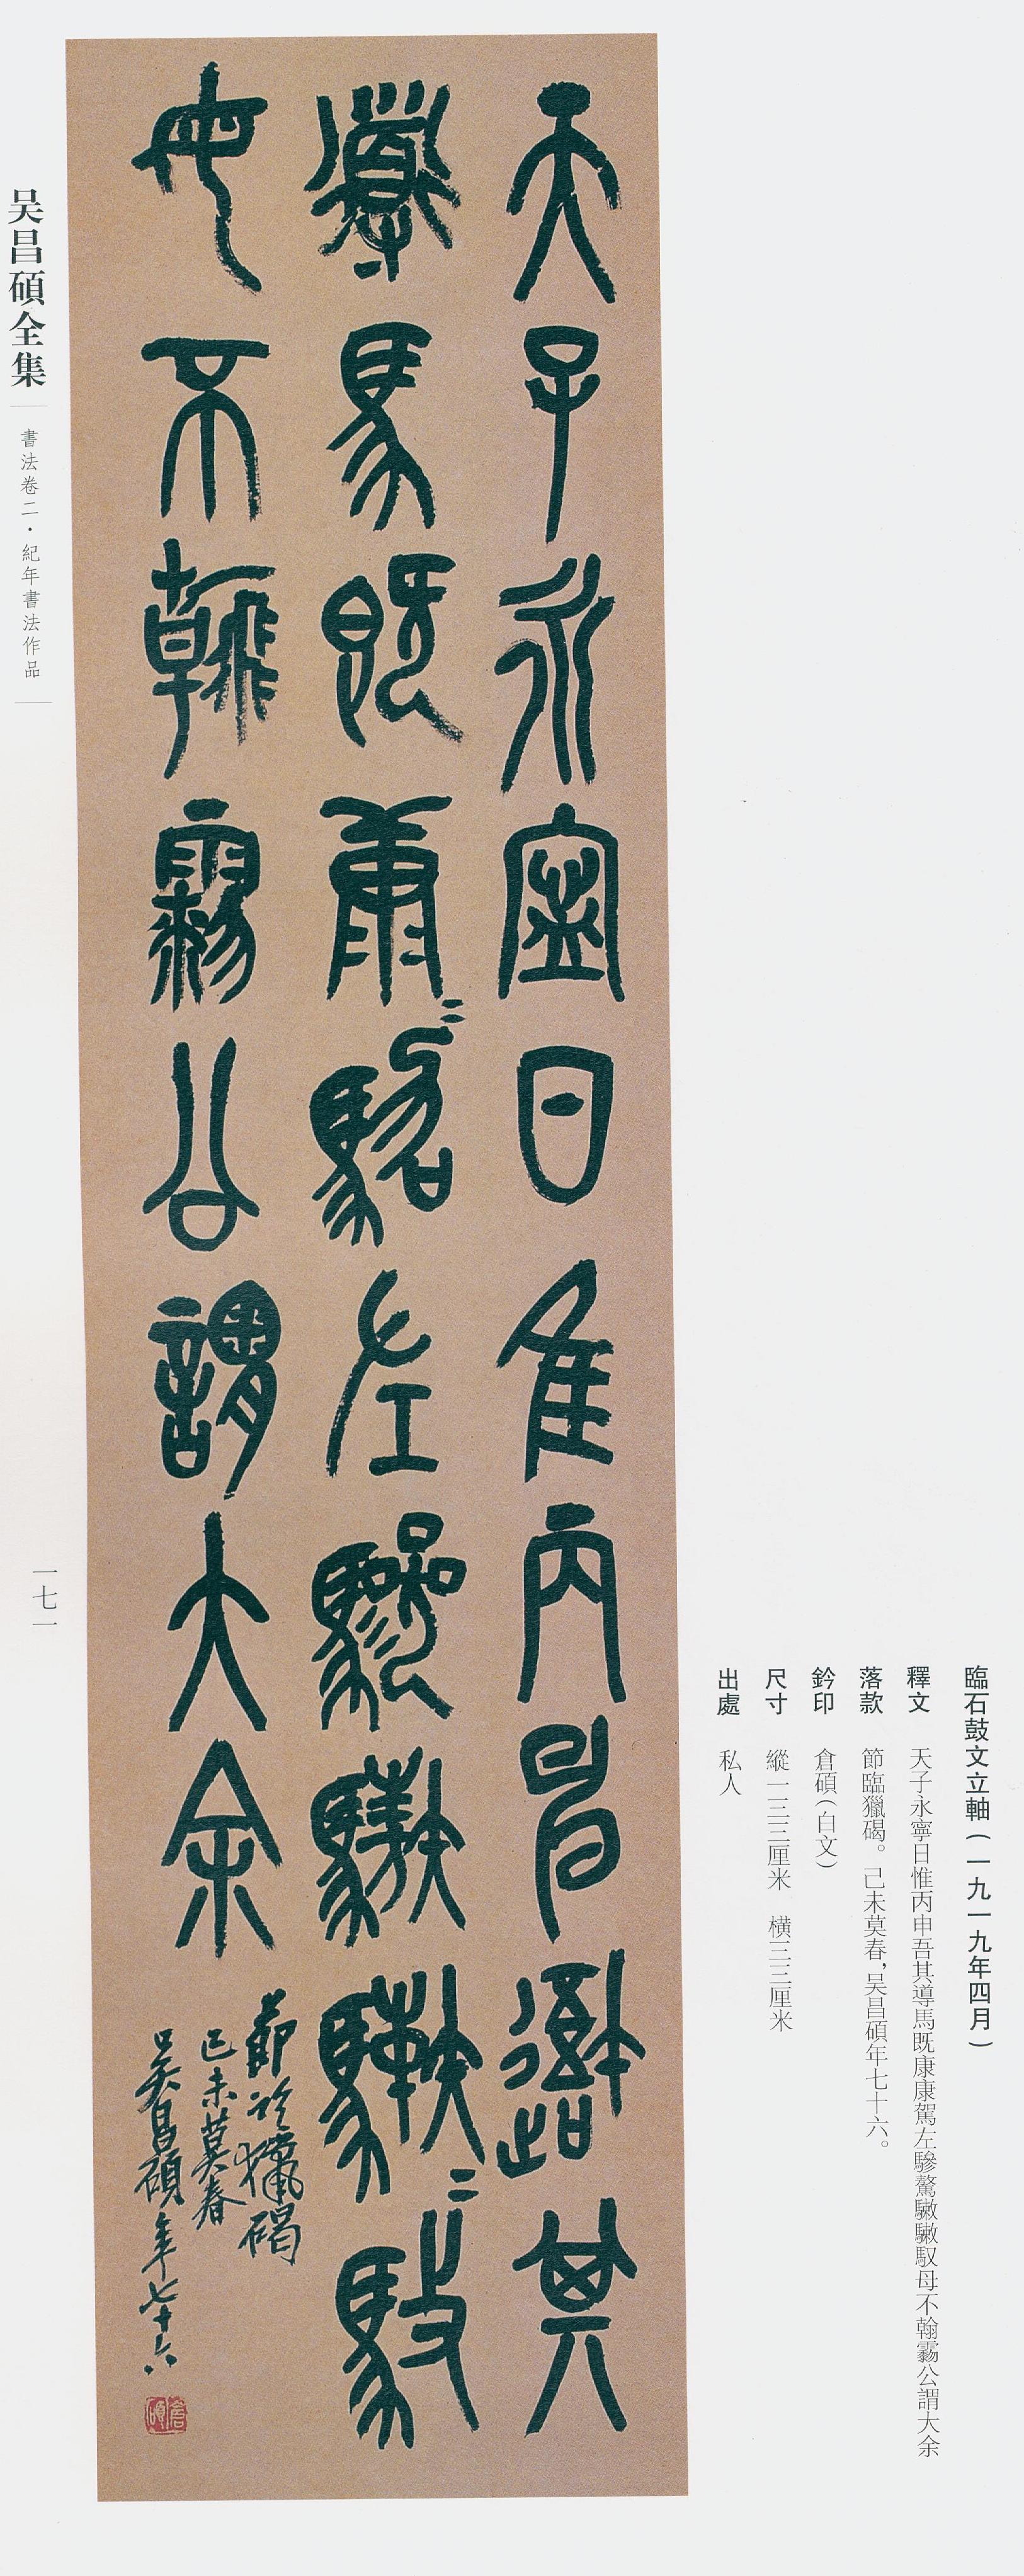 臨石鼓文立軸（一九一九年四月）
釋文 天子永寧日惟丙申吾其導馬既康康駕左驂驁馭母不翰公謂大余
落款 節臨獵碣。己未莫春，吴昌碩年七十六。
鈐印 倉碩（白文）
尺寸 縱一三三厘米 橫三三厘米
出處 私人
天子永寍日隹丙申䢦其
導馬既康=駕左驂驁馭
母不翰公謂大余
節臨獵碣
己未莫春
吳昌碩年七十六
倉碩
吴昌碩全集
書法卷二·紀年書法作品
一七一